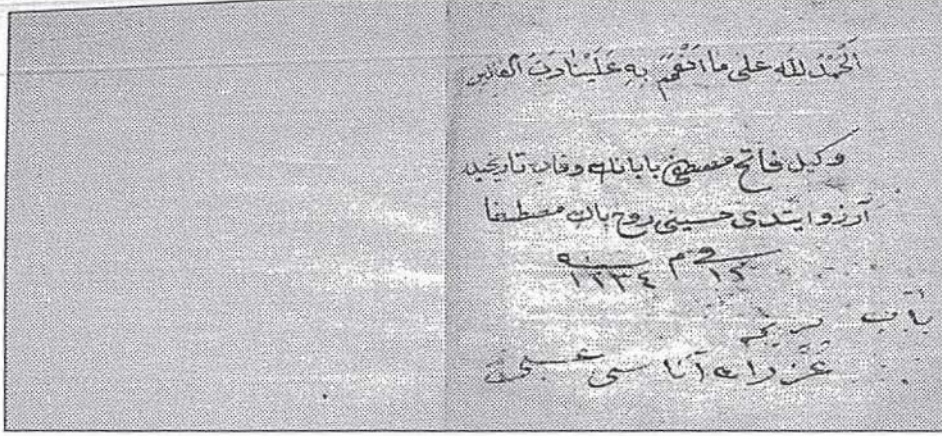 اَلْحَمْدُ لِلّٰه عَلٰى مَا اَنْعَمَ بِهِ عَلَيْنَا رَبّ العالمين
وكيل فاتح مصطفى بابانك وفات تاريخيد
آرزو ايتدى حسينى روح پاك مصطفا
١٢ م سنه ١٢٣٤
باب
آنا سى